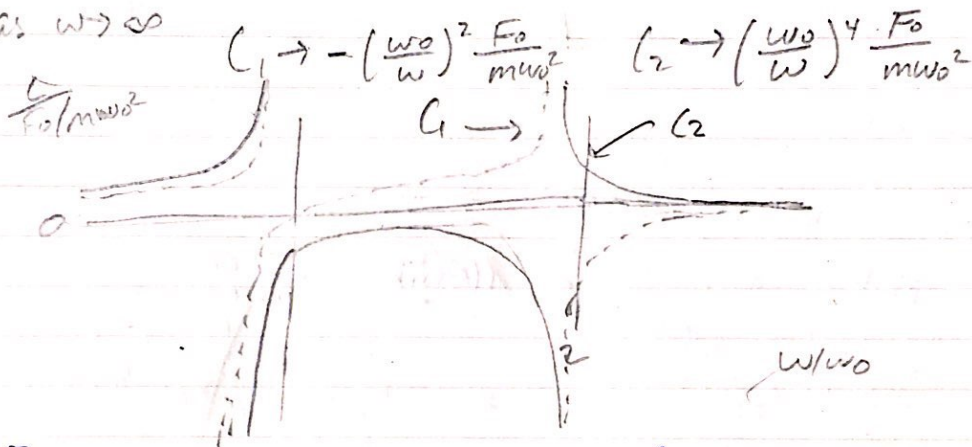 as ω → ∞
C₁ → -(ω0/ω)² F0/mω0²   C₂ → (ω0/ω)⁴ F0/mω0²
C/F0/mω0²
C₁ →   C₂
0
2
ω/ω0